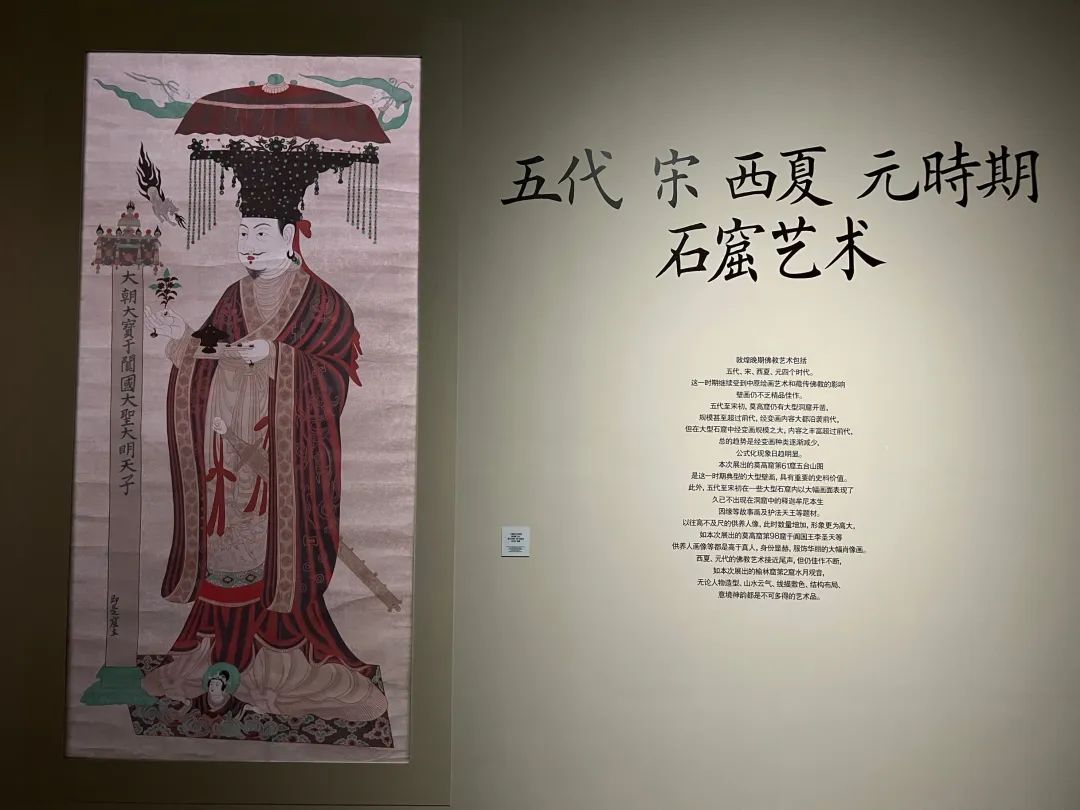 大朝大寶于闐國大聖大明天子
即是窟主
五代 宋 西夏 元時期
石窟艺术
敦煌晚期佛教艺术包括
五代、宋、西夏、元四个时代。
这一时期继续受到中原绘画艺术和藏传佛教的影响
壁画仍不乏精品佳作。
五代至宋初，莫高窟仍有大型洞窟开凿，
规模甚至超过前代，经变画内容大都沿袭前代，
但在大型石窟中经变画规模之大，内容之丰富超过前代，
总的趋势是经变画种类逐渐减少，
公式化现象日趋明显。
本次展出的莫高窟第61窟五台山图
是这一时期典型的大型壁画，具有重要的史料价值。
此外，五代至宋初在一些大型石窟内以大幅画面表现了
久已不出现在洞窟中的释迦牟尼本生
因缘等故事画及护法天王等题材。
以往高不及尺的供养人像，此时数量增加，形象更为高大，
如本次展出的莫高窟第98窟于阗国王李圣天等
供养人画像等都是高于真人，身份显赫，服饰华丽的大幅肖像画。
西夏、元代的佛教艺术接近尾声，但仍佳作不断，
如本次展出的榆林窟第2窟水月观音，
无论人物造型、山水云气、线描敷色、结构布局、
意境神韵都是不可多得的艺术品。